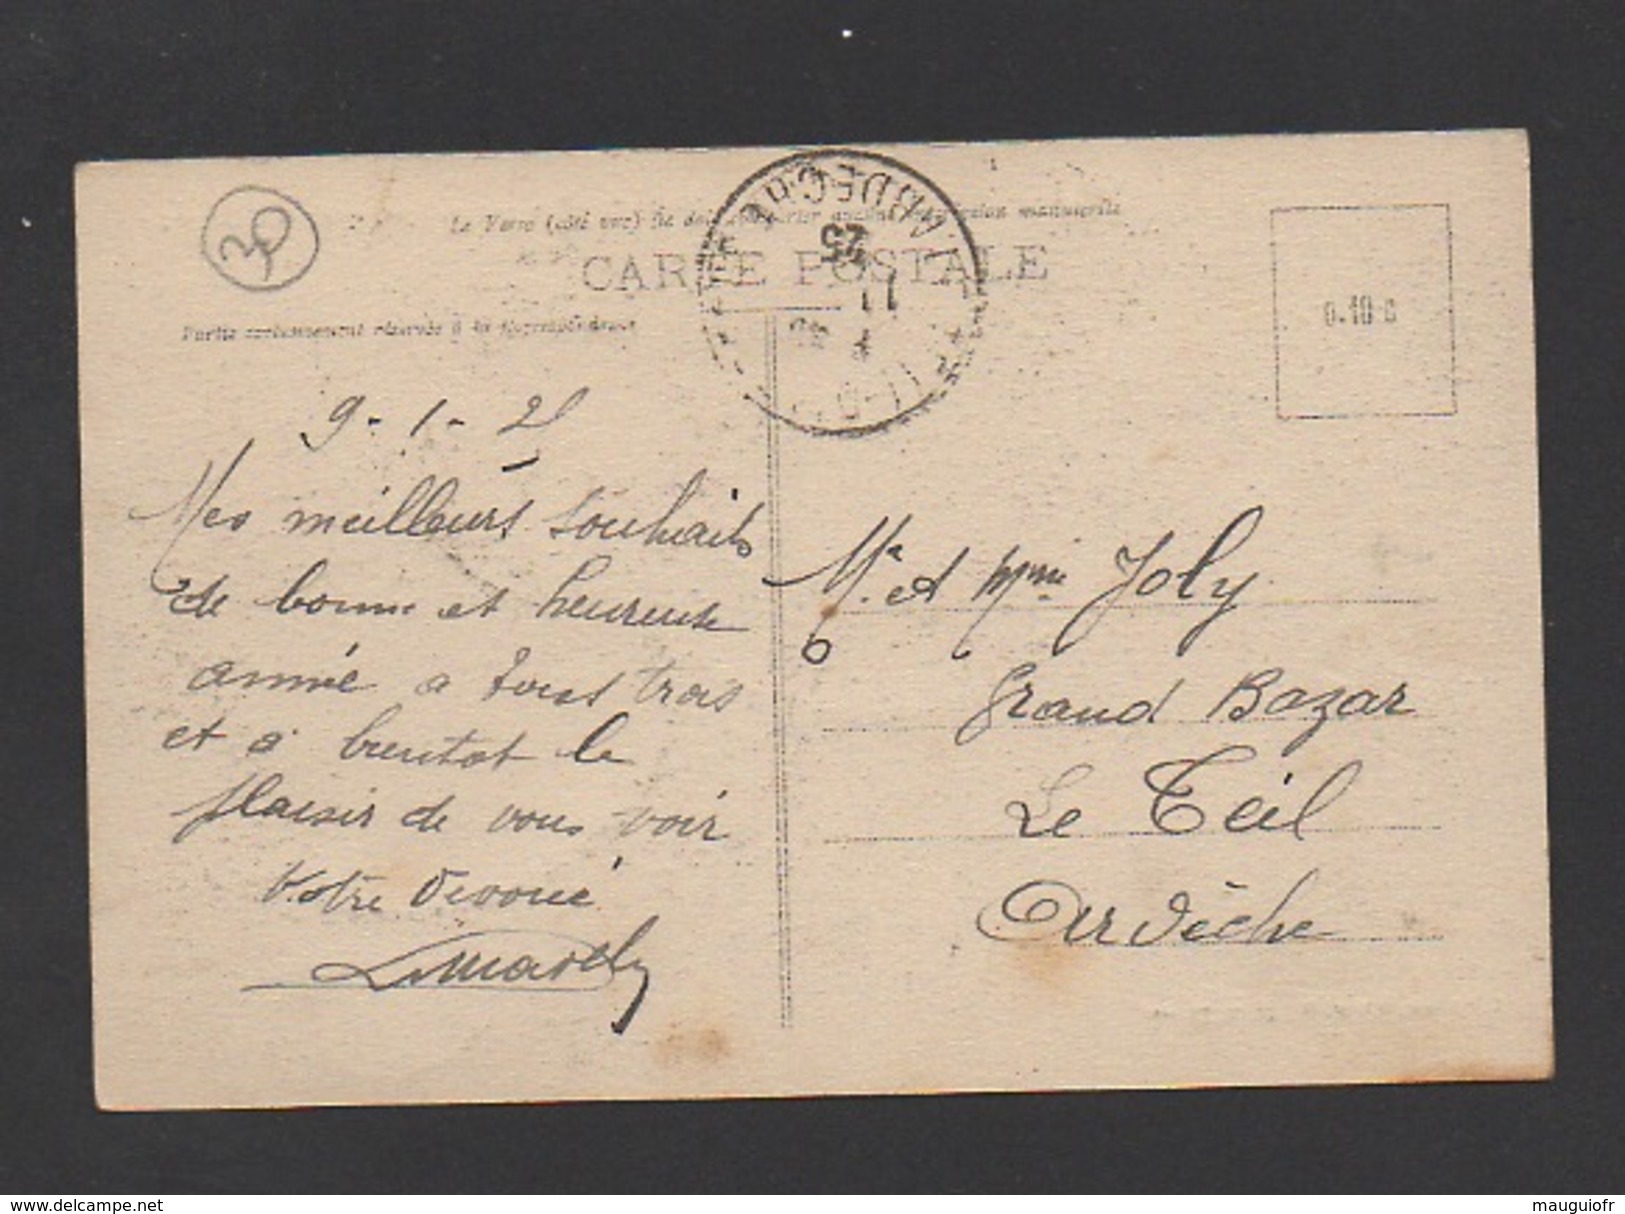 Le Verso (côté vue) ne doit comporter aucune inscription manuscrite
CARTE POSTALE
Partie exclusivement réservée à la correspondance
0.10 c
ARDECHE
11
25
9-1-25
Mes meilleurs souhaits
de bonne et heureuse
année a tous trois
et a bientot le
plaisir de vous voir
Votre dévoué
Mr et Mme Joly
Grand Bazar
Le Teil
Ardèche
delcampe.net
mauguiofr